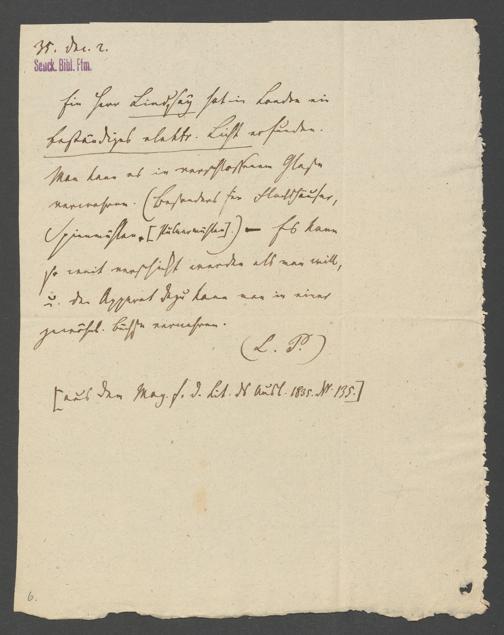 35. Dec. 2.
Senck. Bibl. Ffm.
Ein Herr Lindsay hat in London ein
beständiges elektr. Licht erfunden.
Man kann es in verschlossenem Glase
verwahren. (Besonders für Flachshäuser,
Spinnmühlen, [Pulvermühlen].) — Es kann
so weit verschickt werden als man will,
u. den Apparat dazu kann man in einer
gewöhnl. Büchse verwahren.
(L. P.)
[aus dem Mag. f. d. Lit. ds Ausl. 1835. Nr. 135.]
6.